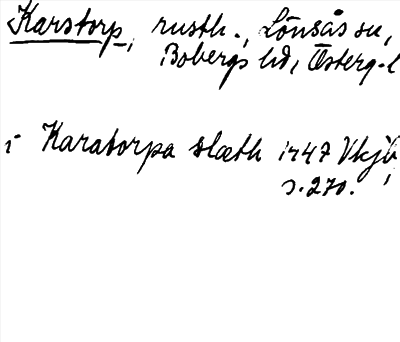 Karstorp, rusth., Lönsås sn,
Bobergs hd, Österg.l
i Karatorpa slæth 1447 Vkjb,
s. 270.